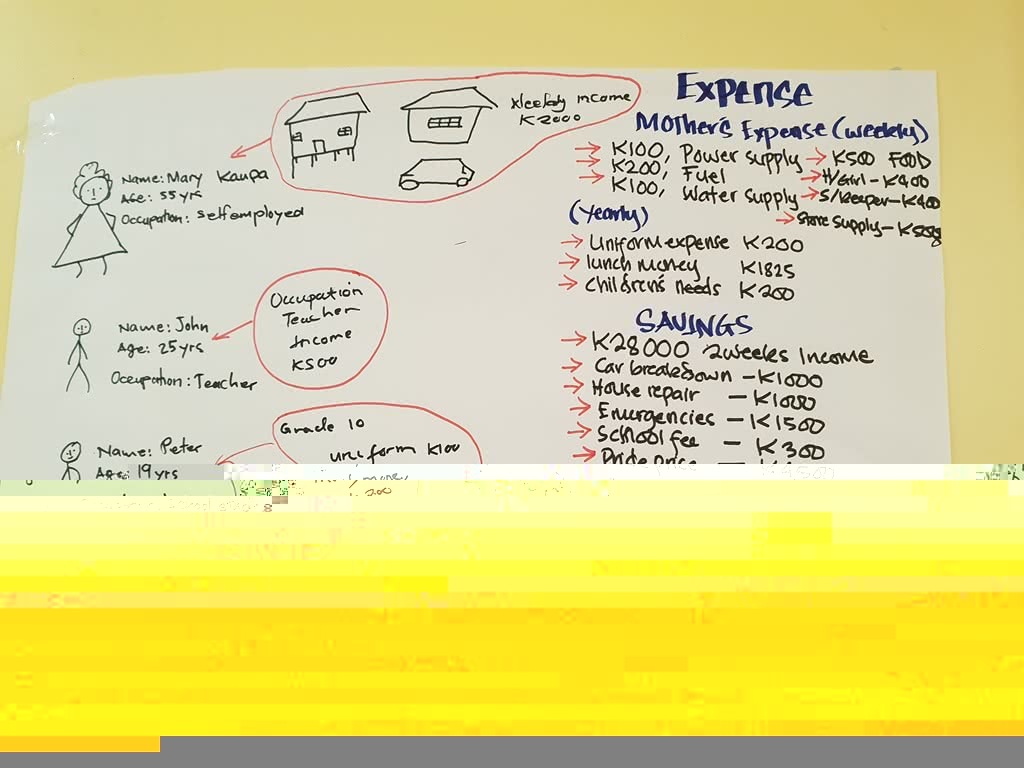 Weekly income
K2000
Name: Mary Kaupa
Age: 55 yrs
Occupation: self employed
Occupation
Teacher
Income
K500
Name: John
Age: 25 yrs
Occupation: Teacher
Grade 10
uniform K100
Name: Peter
Age: 19 yrs
200
Expense
Mother's Expense (weekly)
K100, Power supply
K200, Fuel
K100, Water supply
K500 FOOD
H/Girl - K400
S/keeper - K400
Store supply -
(Yearly)
Uniform expense K200
lunch money K1825
children's needs K200
SAVINGS
K28000 2weeks Income
Car breakdown - K1000
House repair - K1000
Emergencies - K1500
School fee - K300